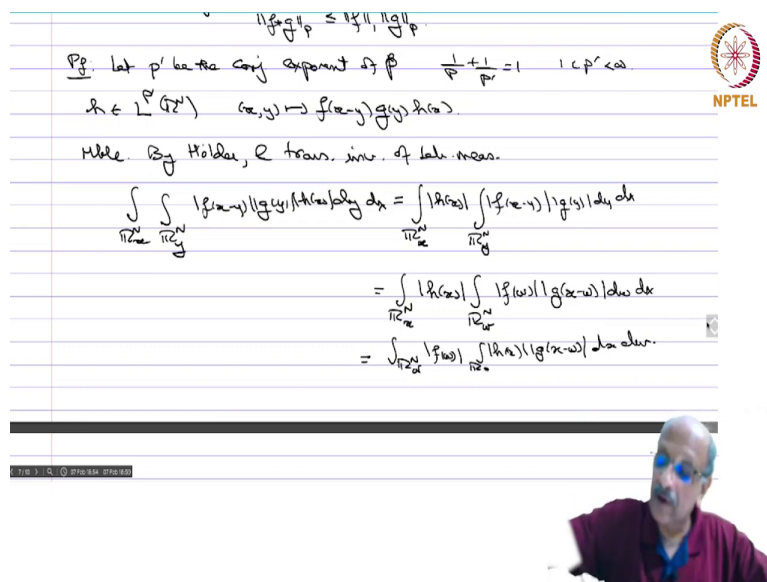 ||f*g||_p ≤ ||f||_1 ||g||_p.
Pf: Let p' be the conj exponent of p 1/p + 1/p' = 1 1 < p' < ∞.
h ∈ L^{p'}(ℝ^N) (x,y) ↦ f(x-y) g(y) h(x).
Mble. By Hölder, & trans. inv. of Leb. meas.
∫_{ℝ^N_x} ∫_{ℝ^N_y} |f(x-y)| |g(y)| |h(x)| dy dx = ∫_{ℝ^N_x} |h(x)| ∫_{ℝ^N_y} |f(x-y)| |g(y)| dy dx
= ∫_{ℝ^N_x} |h(x)| ∫_{ℝ^N_w} |f(w)| |g(x-w)| dw dx
= ∫_{ℝ^N_w} |f(w)| ∫_{ℝ^N_x} |h(x)| |g(x-w)| dx dw.
NPTEL
7/10